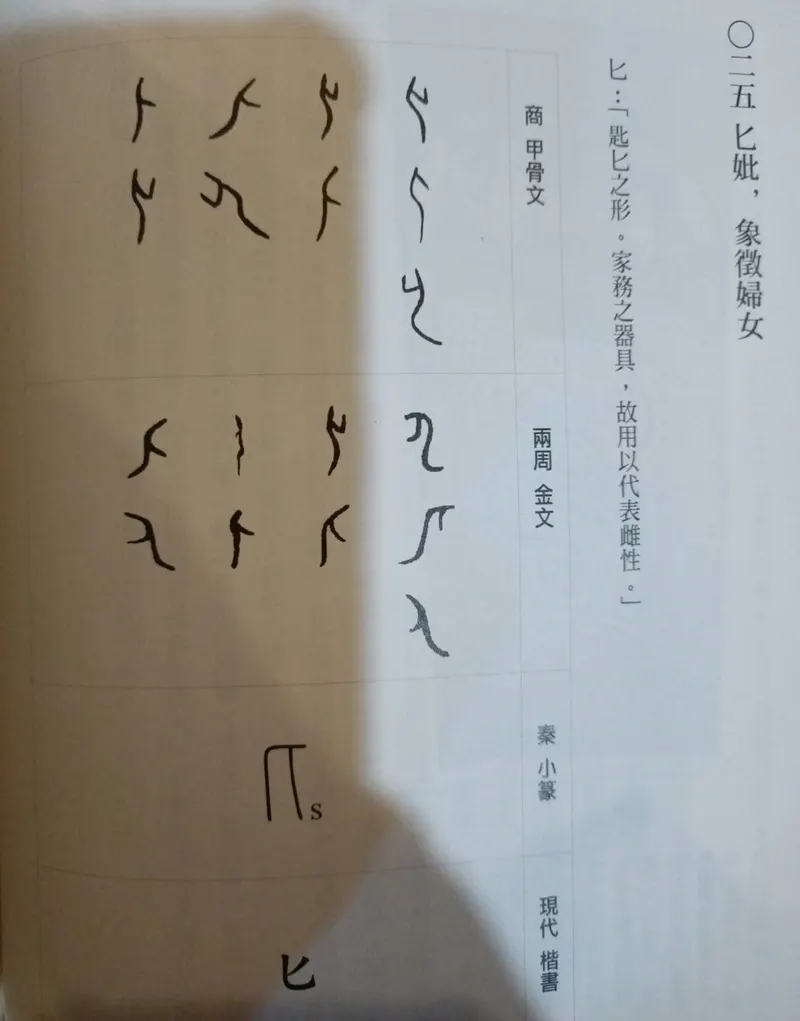 〇二五 匕妣，象徵婦女
匕：「匙匕之形。家務之器具，故用以代表雌性。」
商 甲骨文
兩周 金文
秦 小篆
s
現代 楷書
匕